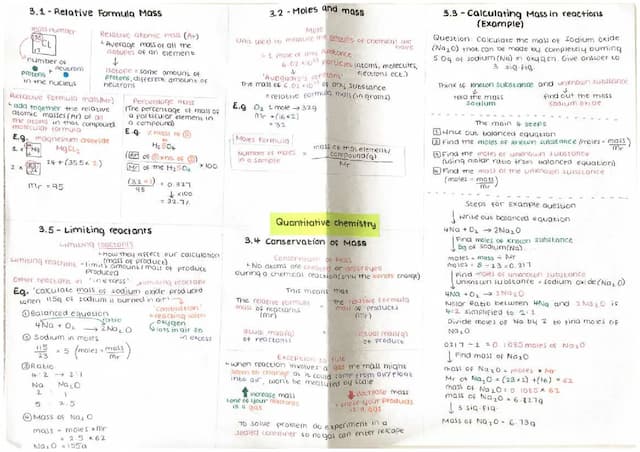 3.1 - Relative Formula Mass
mass number
CL
number of
protons + neutrons
in the nucleus
Relative atomic mass (Ar)
Average mass of all the
isotopes of an element
Isotope = same amounts of
protons, different amounts of
neutrons
Relative formula mass (Mr)
add together the relative
atomic masses (Mr) of all
the atoms in that compound
molecular formula
E.g. magnesium chloride
MgCl₂
1 x
2 x
24 + (35.5 x 2)
Mr = 95
Percentage mass
(The percentage of mass of
a particular element in
a compound)
E.g. % mass to
H₂SO₄
Mr of the H₂SO₄
x 100
= 0.327
x 100
= 32.7%
3.2 - Moles and mass
Mole
1 mole of any substance
particles (atoms, molecules,
The mass of 6.02 x 10²³ of any substance
= relative formula mass (in grams)
E.g O₂ 1 mole → 32g
Mr = (16 x 2)
= 32
Moles Formula
Number of moles
in a sample
=
mass of that element/
compound (g)
Mr
3.3 - Calculating Mass in reactions
(Example)
Question: Calculate the mass of sodium oxide
(Na₂O) that can be made by completely burning
5.0g of sodium (Na) in oxygen. Give answer to
3 sig. fig.
Think of known substance and unknown substance
sodium
find out the mass
sodium oxide
The main 4 steps
1 Write out balanced equation
2 Find the moles of known substance (moles = mass/mr)
3 Find the moles of unknown substance
(using molar ratio from balanced equation)
4 Find the mass of the unknown substance
(moles = mass/mr)
Steps for example question
Write out balanced equation
4Na + O₂ → 2Na₂O
Find moles of known substance
5g of sodium (Na).
moles = mass ÷ Mr
moles = 5 ÷ 23 = 0.217
Find moles of unknown substance
unknown substance = sodium oxide (Na₂O)
4Na + O₂ → 2Na₂O
Molar Ratio between 4Na and 2Na₂O is
4:2 simplified to 2:1
Divide moles of Na by 2 to find moles of
Na₂O
0.217 ÷ 2 = 0.1085 moles of Na₂O
Find mass of Na₂O
mass of Na₂O = moles x Mr
Mr of Na₂O = (23 x 2) + (16) = 62
mass of Na₂O = 0.1085 x 62
mass of Na₂O = 6.727g
3 sig. fig.
Mass of Na₂O = 6.73g
Quantitative chemistry
3.5 - Limiting reactants
Limiting reactants
How they affect our calculation
(mass of product)
Limiting reactant = limits amount/mass of product
produced
Other reactants in "excess"
E.g. 'calculate mass of sodium oxide produced
when 115g of sodium is burned in air'
1 Balanced equation
4Na + O₂ → 2Na₂O
oxygen
lots in air so
in excess
2 Sodium in moles
115/23 = 5 (moles = mass/Mr)
3 Ratio
4:2 → 2:1
Na Na₂O
2 1
5 2.5
4 Mass of Na₂O
mass = moles x Mr
= 2.5 x 62
Na₂O = 155g
3.4 Conservation of Mass
Conservation of Mass
No atoms are created or destroyed
during a chemical reaction
This means that
The relative formula
mass of reactants
(mr)
=
the relative formula
mass of products
(mr)
of reactants
=
of product
Exception to rule
When reaction involves a gas the mass might
seem to change as it could come from or escape
into air, won't be measured by scale
increase mass
one of your reactants
is a gas
decrease mass
is a gas
To solve problem do experiment in a
sealed container so no gas can enter/escape